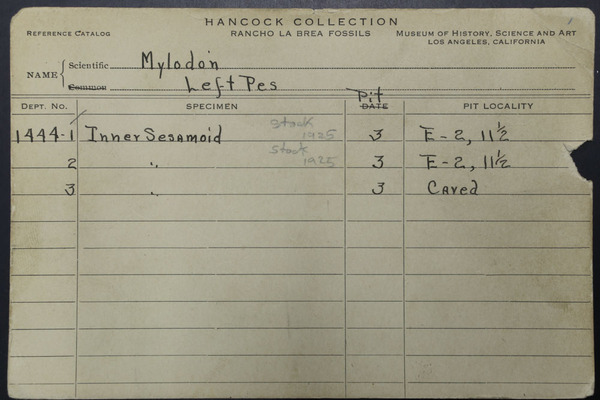 HANCOCK COLLECTION
REFERENCE CATALOG RANCHO LA BREA FOSSILS MUSEUM OF HISTORY, SCIENCE AND ART
LOS ANGELES, CALIFORNIA
NAME { Scientific Mylodon
Common Left Pes
Pit
DEPT. NO. SPECIMEN DATE PIT LOCALITY
1444-1 Inner Sesamoid Stock 1925 3 E-2, 11½
2 " Stock 1925 3 E-2, 11½
3 " 3 Caved